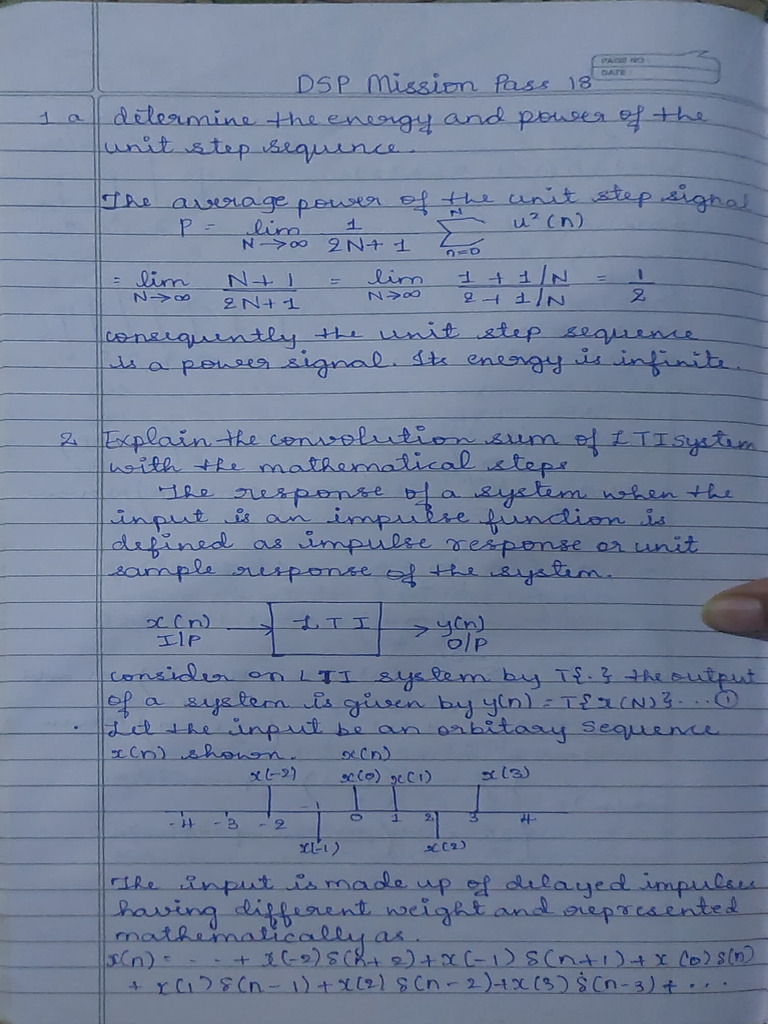 PAGE NO:
DATE:
DSP Mission Pass 18
1 a determine the energy and power of the
unit step sequence.
The average power of the unit step signal
P = lim N→∞ 1/(2N+1) N∑n=0 u²(n)
= lim N→∞ (N+1)/(2N+1) = lim N→∞ (1+1/N)/(2+1/N) = 1/2
consequently the unit step sequence
is a power signal. Its energy is infinite.
2 Explain the convolution sum of LTI system
with the mathematical steps
The response of a system when the
input is an impulse function is
defined as impulse response or unit
sample response of the system.
x(n) → LTI → y(n)
I/P O/P
consider on LTI system by T{.} the output
of a system is given by y(n) = T{x(N)}... ①
. Let the input be an orbitary sequence
x(n) shown. x(n)
x(-2) x(0) x(1) x(3)
-4 -3 -2 -1 0 1 2 3 4
x(-1) x(2)
The input is made up of delayed impulses
having different weight and represented
mathematically as.
x(n) = - .. + x(-2) δ(n+2) + x(-1) δ(n+1) + x(0) δ(n)
+ x(1) δ(n-1) + x(2) δ(n-2) + x(3) δ(n-3) + ...